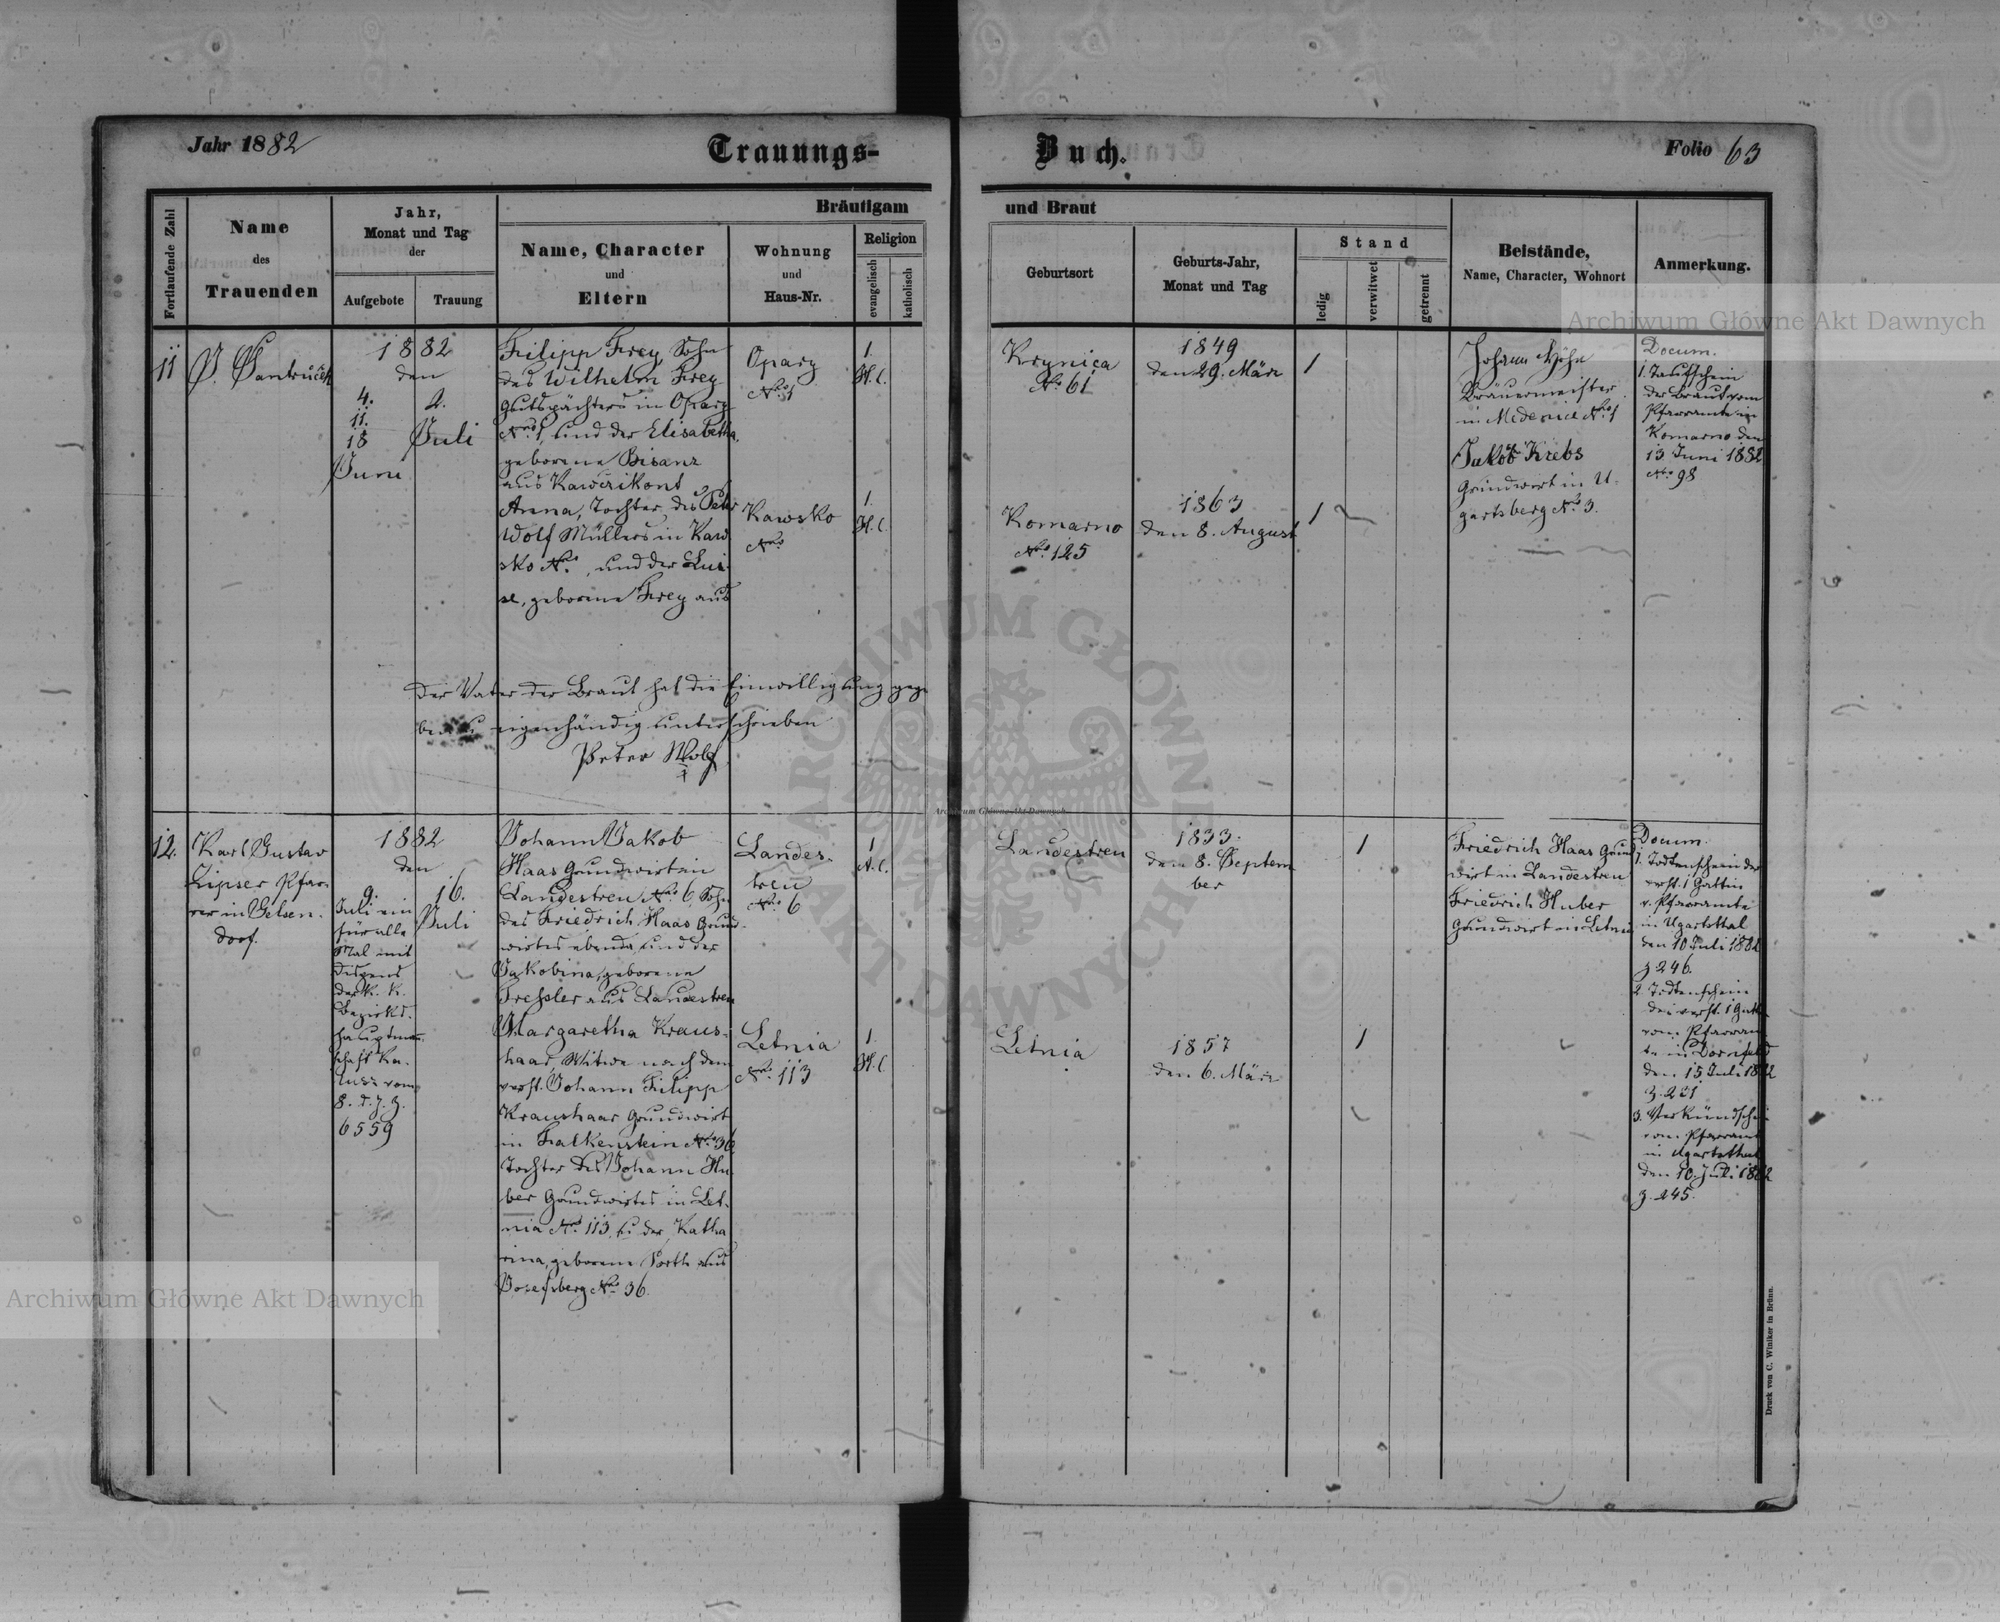 Jahr 1882
Trauungs-
Buch.
Folio 63
Fortlaufende Zahl
Name
des
Trauenden
Jahr,
Monat und Tag
der
Aufgebote
Trauung
Bräutigam
und Braut
Name, Character
und
Eltern
Wohnung
und
Haus-Nr.
Religion
evangelisch
katholisch
Geburtsort
Geburts-Jahr,
Monat und Tag
Stand
ledig
verwitwet
getrennt
Beistände,
Name, Character, Wohnort
Anmerkung.
11
1882
den
4.
11.
18
Juni
2.
Juli
Filipp Frey, Sohn
des Wilhelm Frey
Gutspächters in Opary
Nro 1, und der Elisabetha,
geborene Bisanz
aus
Anna, Tochter des Peter
Wolf Müllers in Kaw
sko Nro , und der Lui-
se, geborene Frey aus
Opary
Nro 1
1.
H.C.
Kawsko
Nro
1.
H.C.
Krynica
No 61
1849
den 29. März
1
Komarno
Nro 125
1863
den 8. August
1
Johann Höhn
Bräuermeister
in Medenice Nro 1
Jakob Krebs
Grundwirt in U-
gartsberg No 3.
Docum.
1. Taufschein
der Braut vom
Pfarramte in
Komarno den
13 Juni 1882
Nro 98
Der Vater der Braut hat die Einwilligung gege-
ben u. eigenhändig unterschrieben
Peter Wolf
12.
Karl Gustav
Lipser Pfar-
rer in Gelsen-
dorf.
1882
den
9.
Juli ein
für alle
Mal mit
Dispens
der k. k.
Bezirks-
hauptman
schaft Ka-
lusz vom
8. d. J. Z.
6559
16.
Juli
Johann Jakob
Haas Grundwirt in
Landestreu Nro 6, Sohn
des Friedrich Haas Grund-
wirtes ebenda, und der
Jakobina, geborene
Tressler aus Landestreu
Margaretha Kraus-
haar, Witwe nach dem
verst. Johann Filipp
Kraushaar Grundwirt
in Falkenstein Nro 36,
Tochter des Johann Hu-
ber Grundwirtes in Let-
nia No 113, u. der Katha
rina, geborene Porth aus
Josefsberg Nro 36.
Landes-
treu
Nro 6
1
A.C.
Letnia
Nro 113
1.
H.C.
Landestreu
1833.
den 8. Septem
ber
1
Letnia
1857
den 6. März
1
Friedrich Haas Grund
wirt in Landestreu
Friedrich Huber
Grundwirt in Letnia
Docum.
1. Todtenschein der
verst. 1 Gattin
v. Pfarramte
in Ugartsthal
den 10 Juli 1882
Z 246.
2. Todtenschein
des verst. 1 Gatt
vom Pfarram
te in Dornfeld
den 15 Juli 1882
Z. 231
3. Verkündschein
vom Pfarramt
in Ugartsthal
den 10. Juli 1882
Z. 245.
Druck von C. Winiker in Brünn.
Archiwum Główne Akt Dawnych
Archiwum Główne Akt Dawnych
Archiwum Główne Akt Dawnych
ARCHIWUM GŁÓWNE AKT DAWNYCH